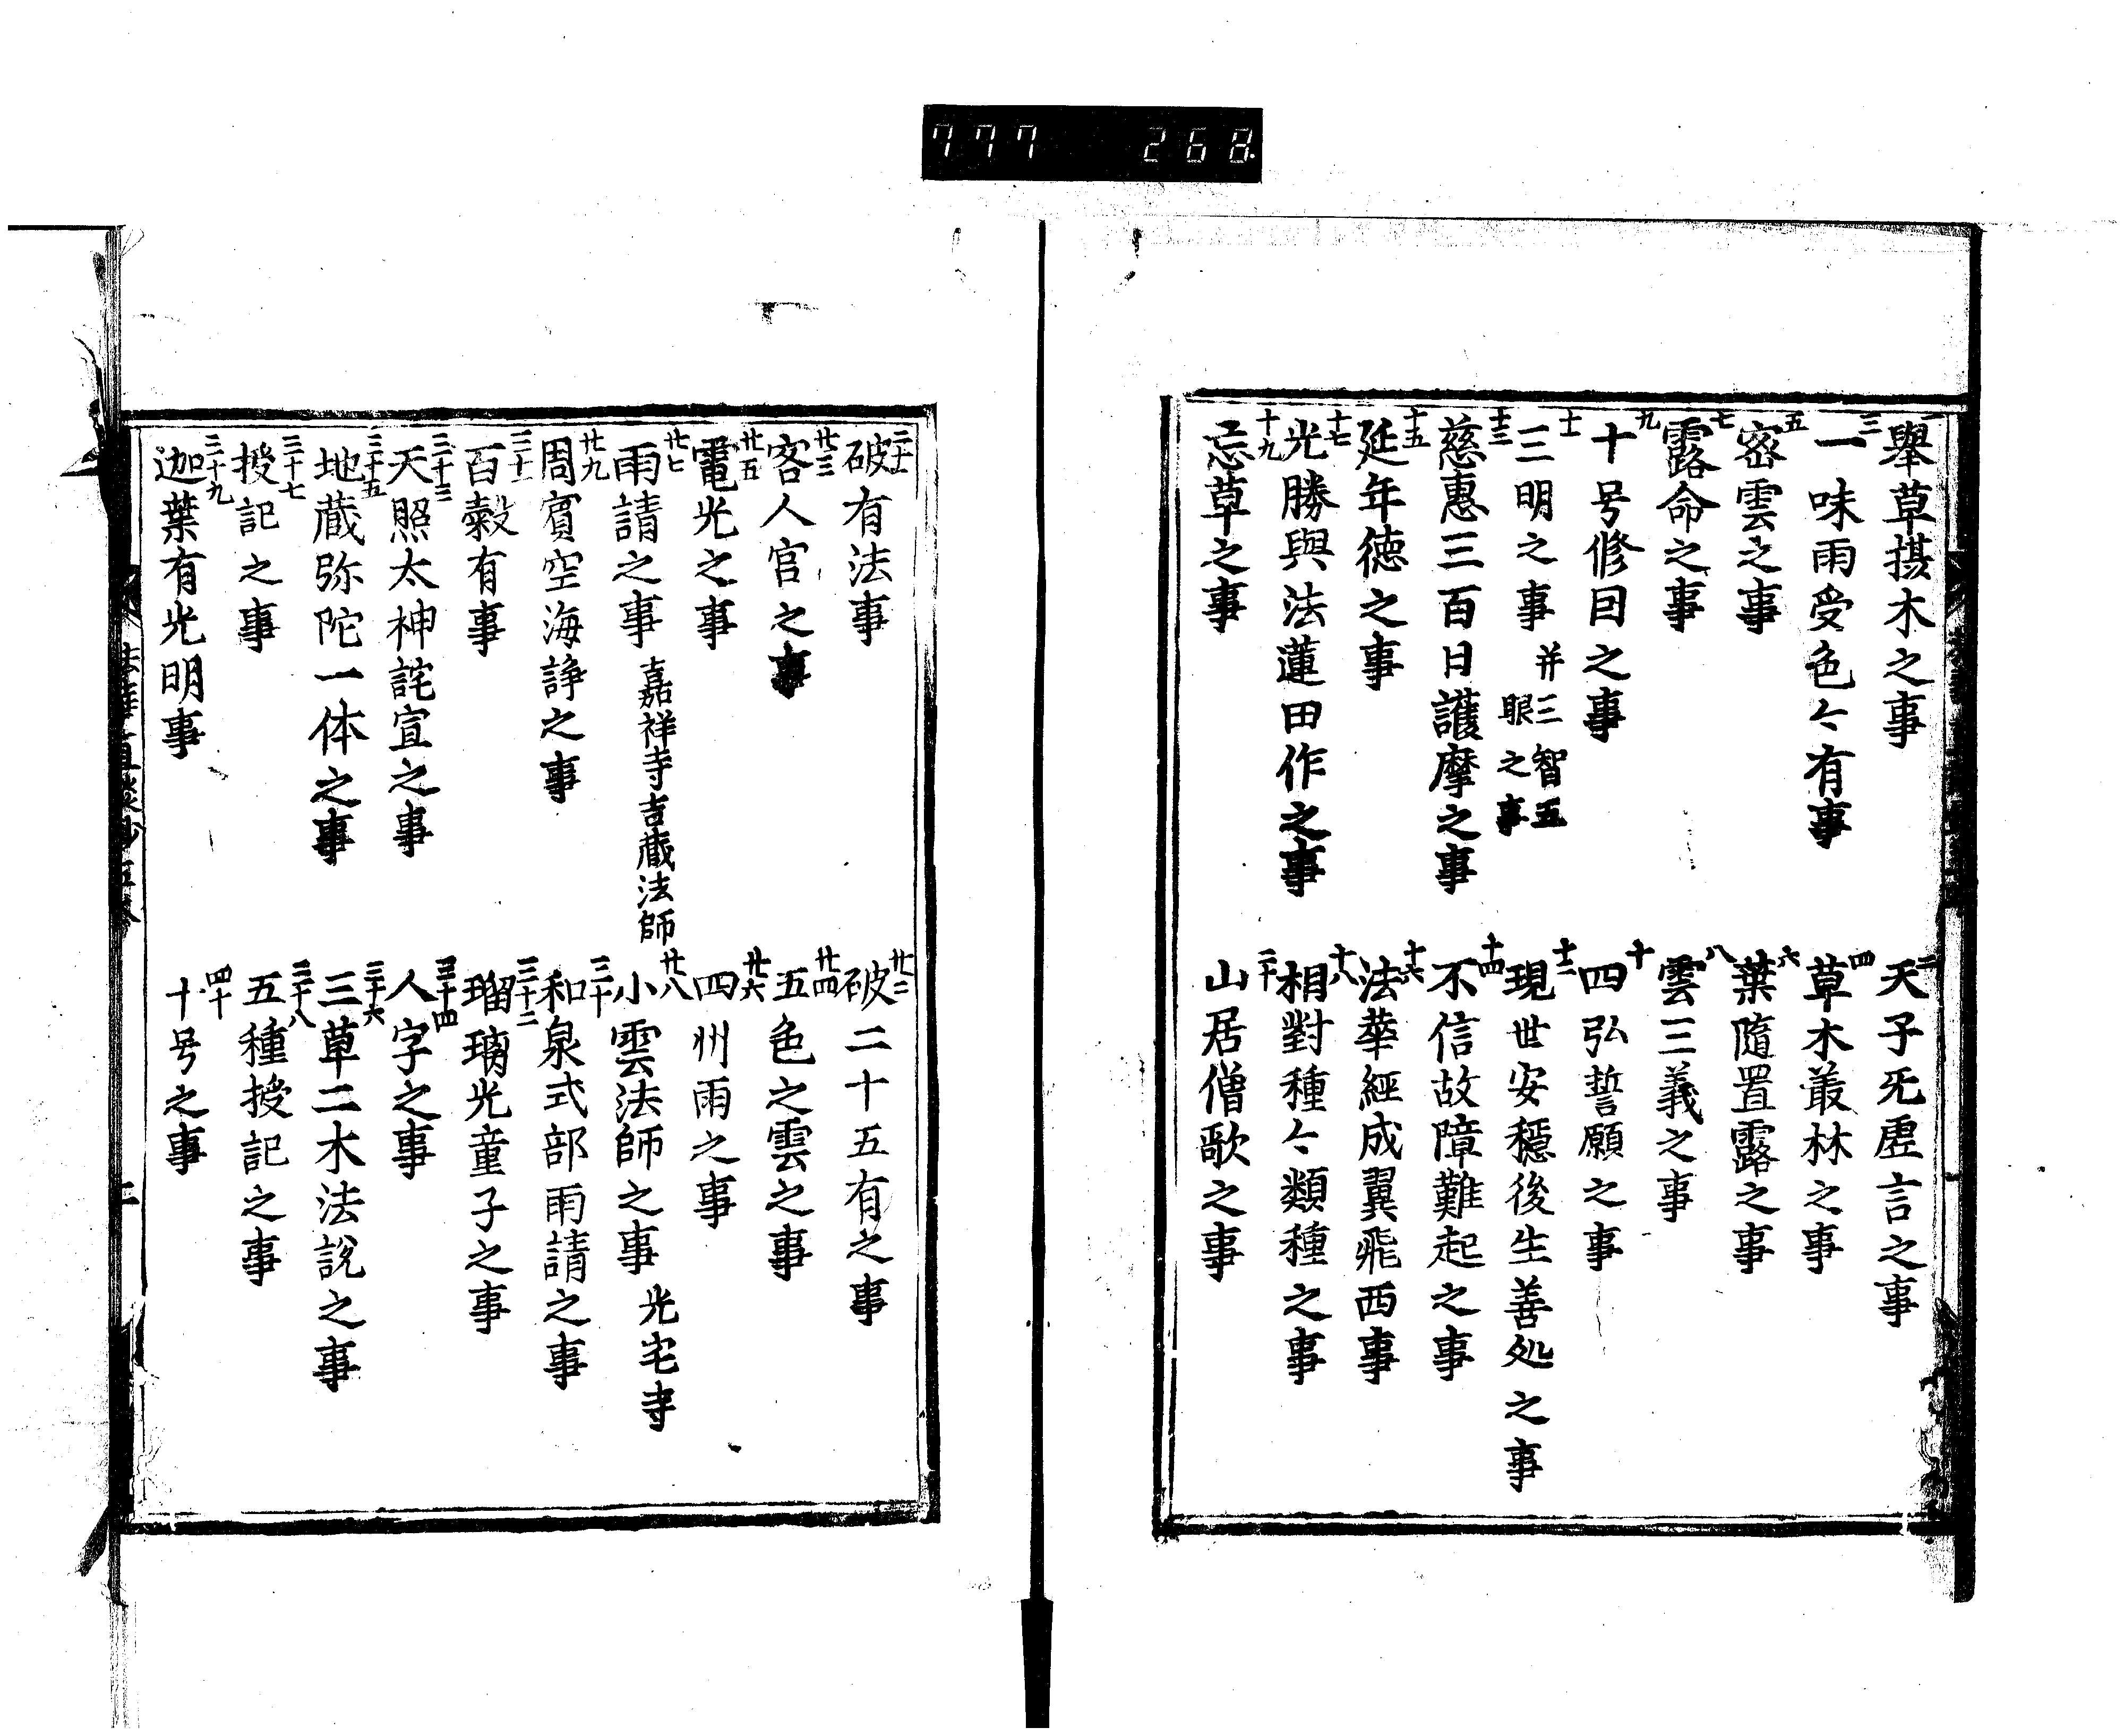 777 268
一 舉草摂木之事
二 天子旡虚言之事
三 一味雨受色〻有事
四 草木叢林之事
五 密雲之事
六 葉隨置露之事
七 露命之事
八 雲三義之事
九 十号修因之事
十 四弘誓願之事
十一 三明之事 并三智五眼之事
十二 現世安穩後生善処之事
十三 慈惠三百日護摩之事
十四 不信故障難起之事
十五 延年徳之事
十六 法華經成翼飛西事
十七 光勝與法蓮田作之事
十八 相對種〻類種之事
十九 忘草之事
二十 山居僧歌之事
二十一 破有法事
廿二 破二十五有之事
廿三 客人官之事
廿四 五色之雲之事
廿五 電光之事
廿六 四州雨之事
廿七 雨請之事 嘉祥寺吉蔵法師
廿八 小雲法師之事 光宅寺
廿九 周賓空海諍之事
三十 和泉式部雨請之事
三十一 百穀有事
三十二 瑠璃光童子之事
三十三 天照太神詫宣之事
三十四 人字之事
三十五 地蔵弥陀一体之事
三十六 三草二木法説之事
三十七 授記之事
三十八 五種授記之事
三十九 迦葉有光明事
四十 十号之事